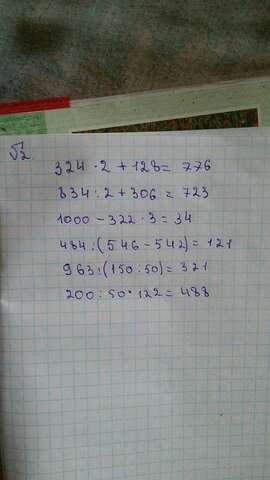 √2
324 · 2 + 128 = 776
834 : 2 + 306 = 723
1000 - 322 · 3 = 34
484 : (546 - 542) = 121
963 : (150 : 50) = 321
200 : 50 · 122 = 488